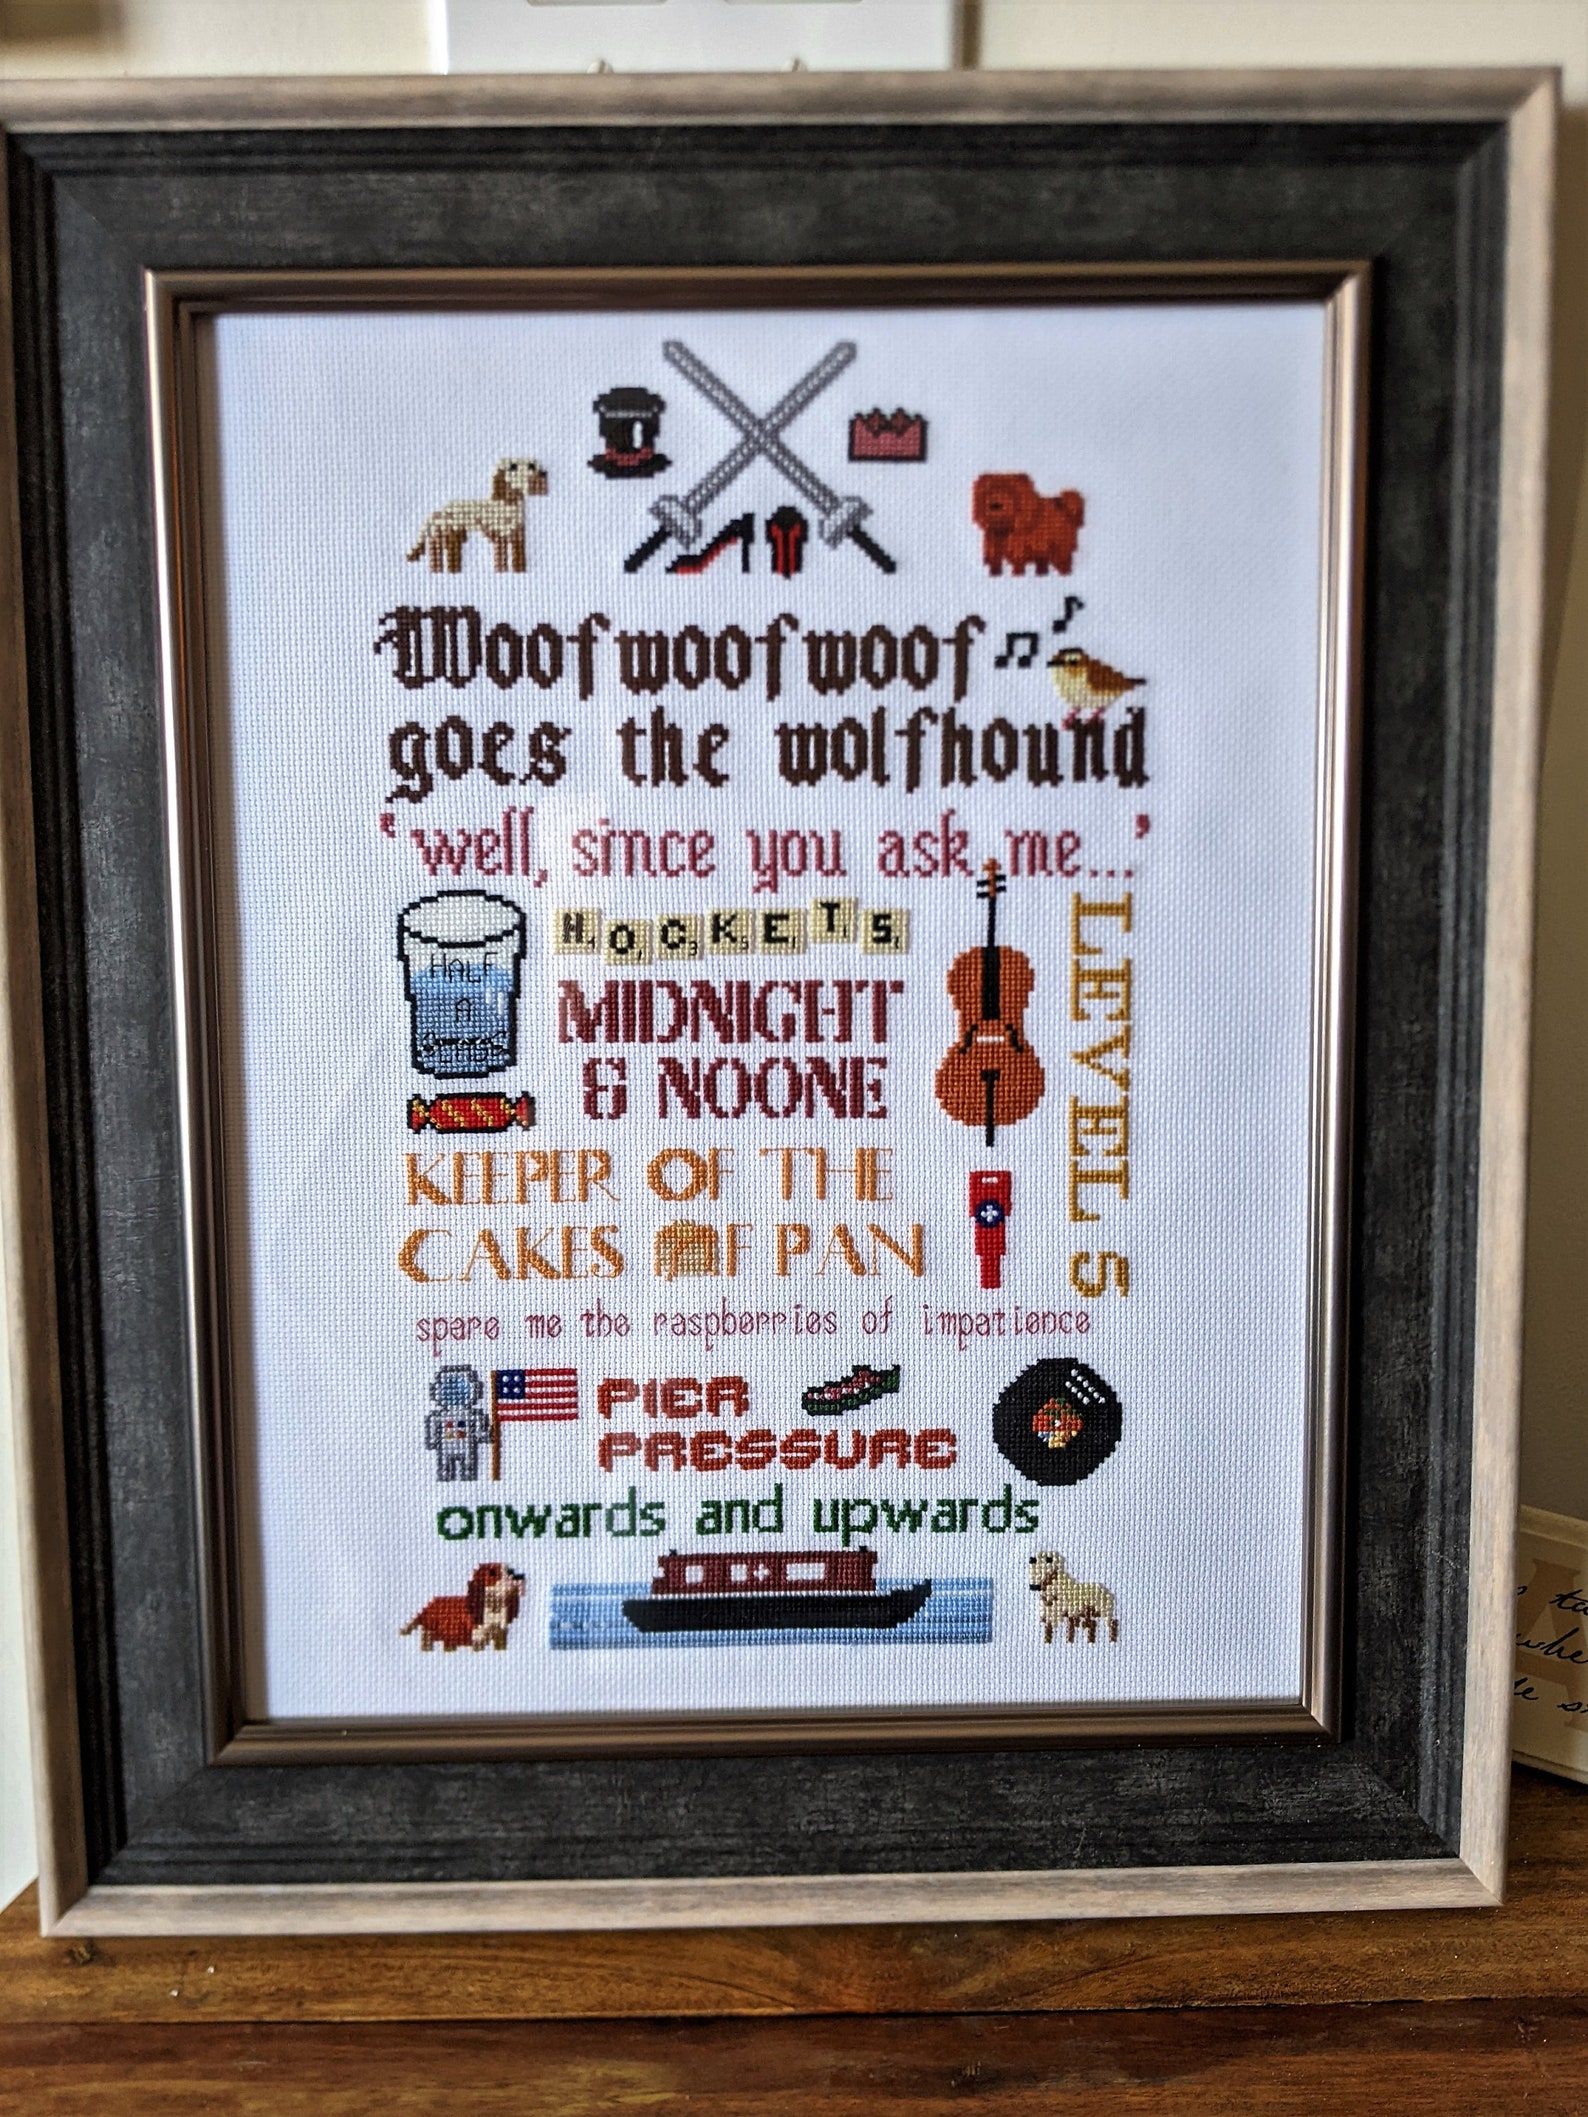 Woof woof woof
goes the wolfhound
'well, since you ask me...'
HALF
A
HOCKETS
MIDNIGHT
& NOONE
LEVEL 5
KEEPER OF THE
CAKES OF PAN
spare me the raspberries of impatience
PIER
PRESSURE
onwards and upwards